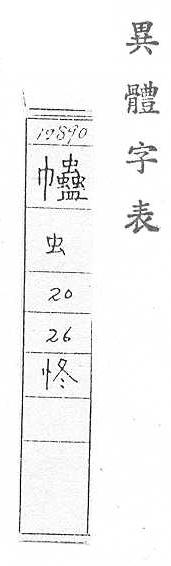 異體字表
19890
虫
20
26
㤏